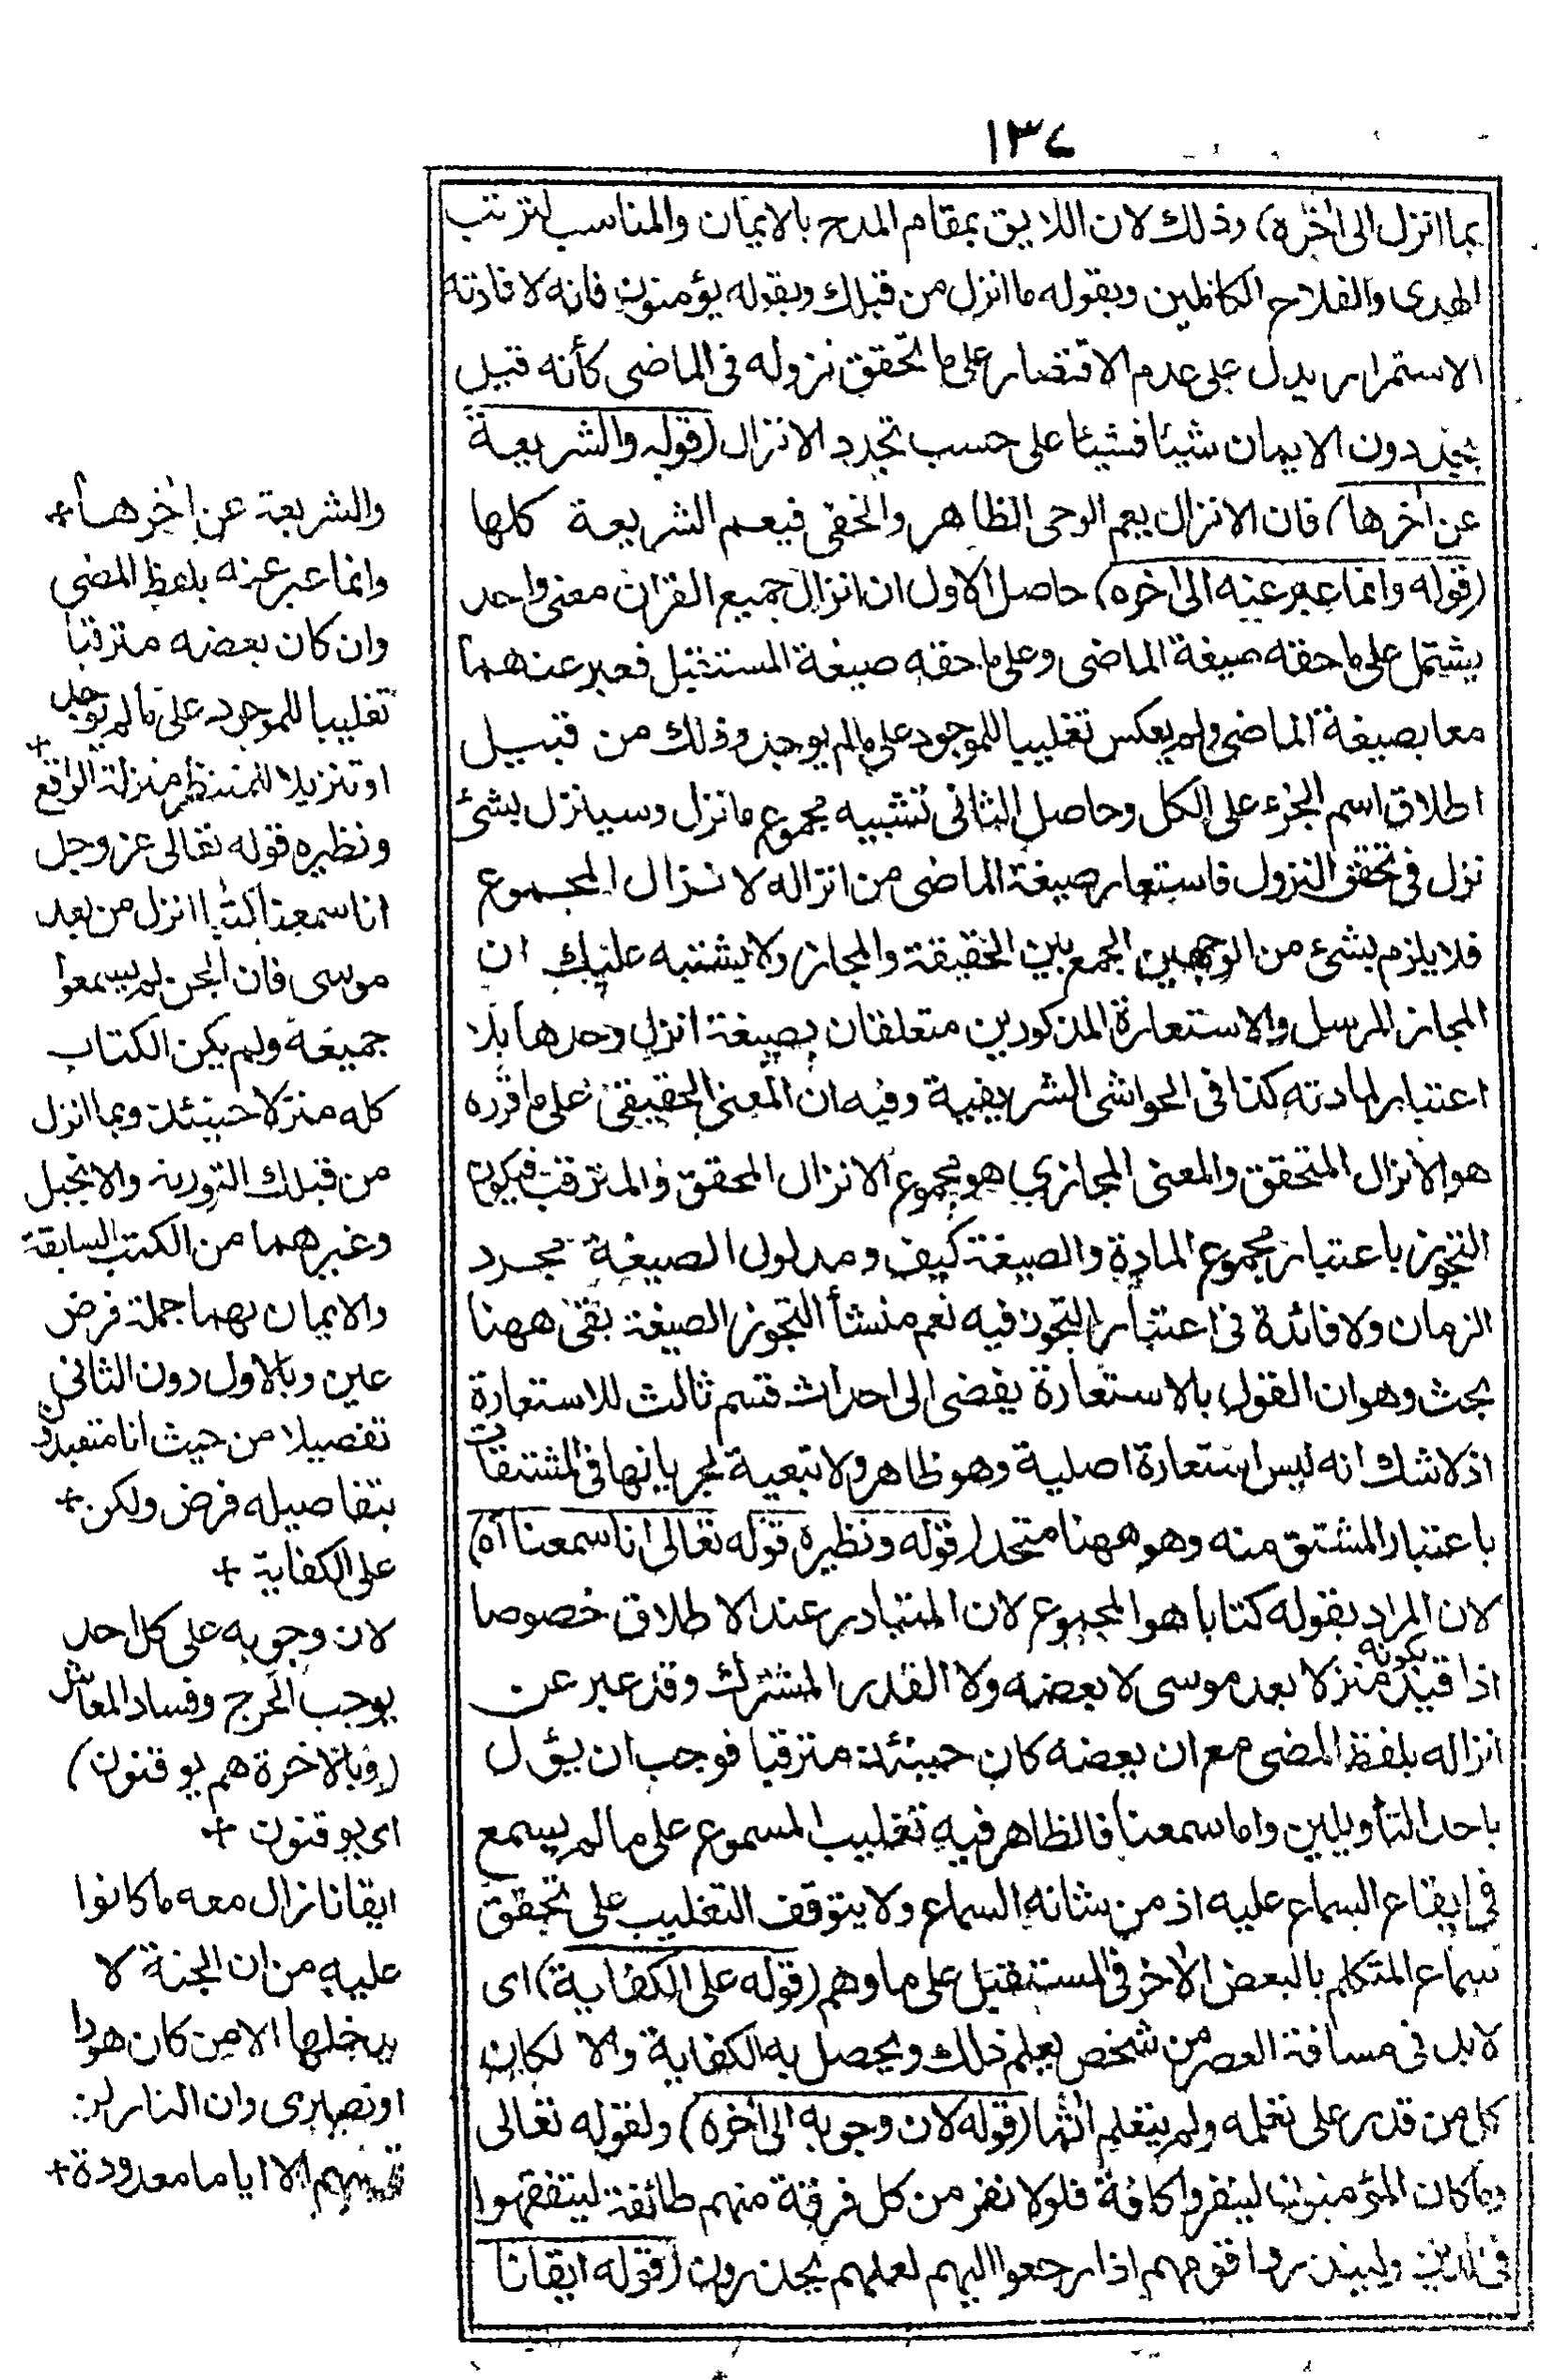 ١٣٤
بما انزل الى اخره) وذلك لان اللايق بمقام المدح بالايمان والمناسب لترتب
الهدى والفلاح الكاملين وبقوله ما انزل من قبلك وبقوله يؤمنون فانه لافادته
الاستمرار يدل على عدم الاقتصار على ما تحقق نزوله فى الماضى كأنه قيل
يجددون الايمان شيئا فشيئا على حسب تجدد الانزال (قوله والشريعة
عن اخرها) فان الانزال يعم الوحى الظاهر والخفى فيعم الشريعة كلها
(قوله وانما عبر عنه الى اخره) حاصل الاول ان انزال جميع القران معنى واحد
يشتمل على ما حقه صيغة الماضى وعلى ما حقه صيغة المستقبل فعبر عنهما
معا بصيغة الماضى ولم يعكس تغليبا للموجود على ما لم يوجد وذلك من قبيل
اطلاق اسم الجزء على الكل وحاصل الثانى تشبيه مجموع ما نزل وسينزل بشئ
نزل فى تحقق النزول فاستعار صيغة الماضى من انزاله لانزال المجموع
فلا يلزم بشئ من الوجهين الجمع بين الحقيقة والمجاز ولا يشتبه عليك ان
المجاز المرسل والاستعارة المذكورين متعلقان بصيغة انزل وحدها بلا
اعتبار لمادته كذا فى الحواشى الشريفية وفيه ان المعنى الحقيقى على ما قرره
هو الانزال المتحقق والمعنى المجازى هو مجموع الانزال المحقق والمترقب فيكون
التجوز باعتبار مجموع المادة والصيغة كيف ومدلول الصيغة مجرد
الزمان ولا فائدة فى اعتبار التجوز فيه نعم منشأ التجوز الصيغة بقى ههنا
بحث وهو ان القول بالاستعارة يفضى الى احداث قسم ثالث للاستعارة
اذ لا شك انه ليس استعارة اصلية وهو ظاهر ولا تبعية لجريانها فى المشتقات
باعتبار المشتق منه وهو ههنا متحد (قوله ونظيره قوله تعالى انا سمعنا اه)
لان المراد بقوله كتابا هو المجموع لان المتبادر عند الاطلاق خصوصا
اذا قيد بكونه منزلا بعد موسى لا بعضه ولا القدر المشترك وقد عبر عن
انزاله بلفظ المضى مع ان بعضه كان حينئذ مترقبا فوجب ان يؤل
باحد التأويلين واما سمعنا فالظاهر فيه تغليب المسموع على ما لم يسمع
فى ايقاع السماع عليه اذ من شانه السماع ولا يتوقف التغليب على تحقق
سماع المتكلم بالبعض الاخر فى المستقبل على ما وهم (قوله على الكفاية) اى
لابد فى مسافة العصر من شخص يعلم ذلك ويحصل به الكفاية والا لكان
كل من قدر على تعلمه ولم يتعلم اثما (قوله لان وجوبه الى اخره) ولقوله تعالى
وما كان المؤمنون لينفروا كافة فلولا نفر من كل فرقة منهم طائفة ليتفقهوا
فى الدين ولينذروا قومهم اذا رجعوا اليهم لعلهم يحذرون (قوله ايقانا
والشريعة عن اخرها+
وانما عبر عنه بلفظ المضى
وان كان بعضه مترقبا
تغليبا للموجود على ما لم يوجد
+
او تنزيلا للمنتظر منزلة الواقع
ونظيره قوله تعالى عز وجل
انا سمعنا كتابا انزل من بعد
موسى فان الجن لم يسمعوا
جميعه ولم يكن الكتاب
كله منزلا حينئذ وبما انزل
من قبلك التورية والانجيل
وغيرهما من الكتب السابقة
والايمان بهما جملة فرض
عين وبالاول دون الثانى
تفصيلا من حيث انا متعبدون
بتفاصيله فرض ولكن+
على الكفاية +
لان وجوبه على كل احد
يوجب الحرج وفساد المعاش
(وبالاخرة هم يوقنون)
اى يوقنون +
ايقانا زال معه ما كانوا
عليه من ان الجنة لا
يدخلها الا من كان هودا
او نصارى وان النار لن
تمسهم الا اياما معدودة+